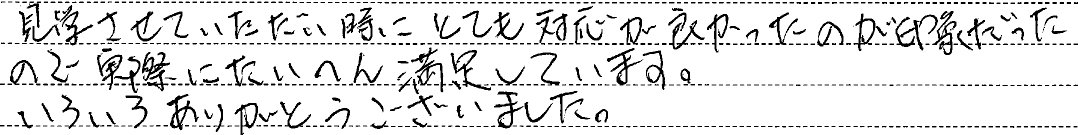 見学させていただい時に とても 対応が 良かったのが印象だった
ので 実際にたいへん 満足しています。
いろいろ ありがとうございました。